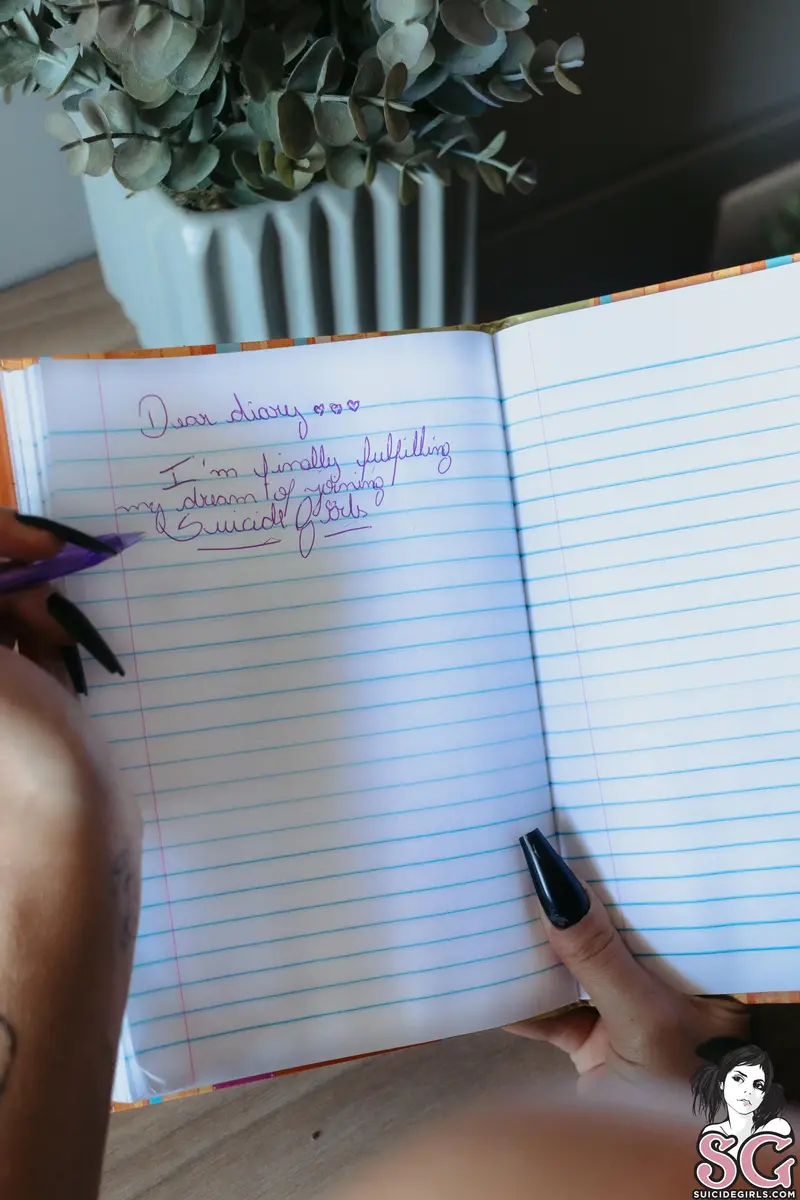 Dear diary ♡♡♡
I'm finally fulfilling
my dream of joining
Suicide Girls
SG
SUICIDEGIRLS.COM